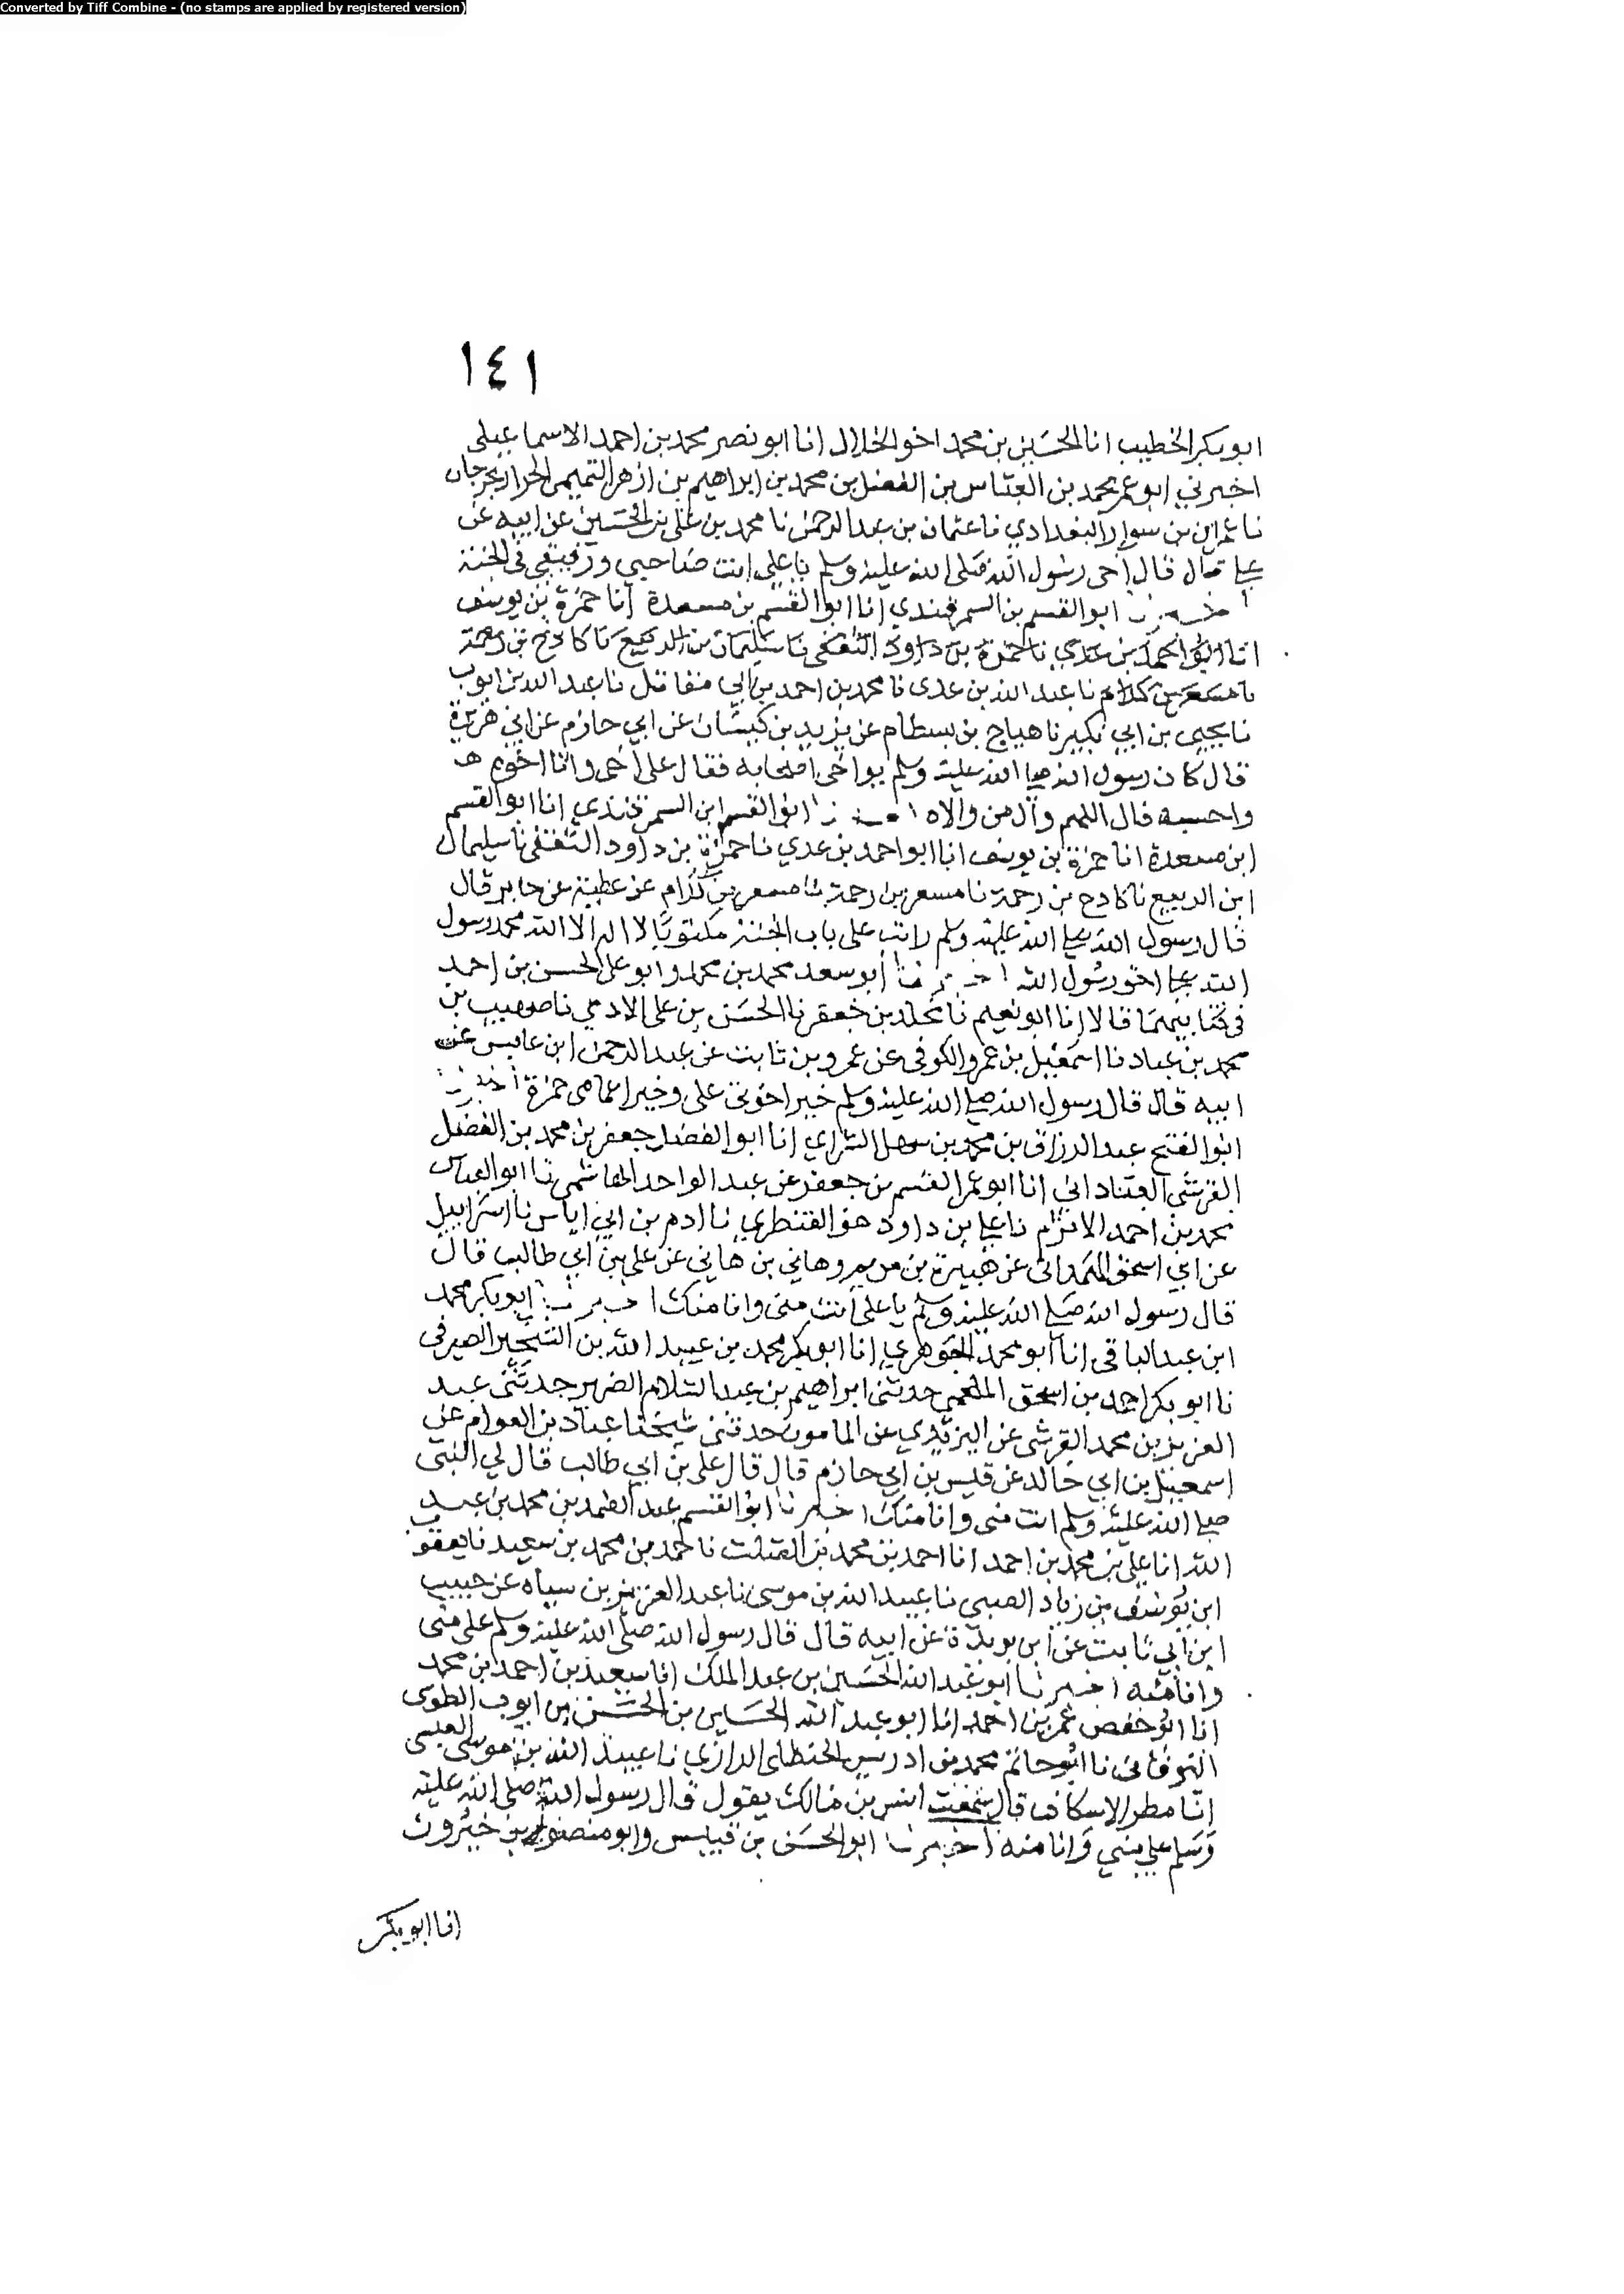 Converted by Tiff Combine - (no stamps are applied by registered version)
١٤١
ابو بكر الخطيب انا الحسين بن محمد اخو الخلال انا ابو نصر محمد بن احمد الاسماعيلى
اخبرني ابو عمر محمد بن العباس بن الفضل بن محمد بن ابراهيم بن ازهر التميمى الحرار بجرجان
نا عمران بن سوار البغدادي نا عثمان بن عبد الرحمن نا محمد بن على بن الحسين عن ابيه عن
على قال قال رسول الله صلى الله عليه وسلم يا على انت صاحبي ورفيقى فى الجنة
ابو القسم بن السمرقندي انا ابو القسم بن مسعدة انا حمزة بن يوسف
انا ابو احمد بن عدي نا حمزة بن داود الثقفى نا سليمان بن الربيع نا كادح بن رحمة
نا مسعر بن كدام نا عبد الله بن عدى نا محمد بن احمد بن ابي مقاتل نا عبد الله بن ايوب
نا يحيى بن ابي بكير نا هياج بن بسطام عن يزيد بن كيسان عن ابي حازم عن ابي هريرة
قال كان رسول الله صلى الله عليه وسلم يواخى اصحابه فقال على اخى وانا اخوه
واحسبه قال اللهم وال من والاه ابو القسم ابن السمرقندي انا ابو القسم
ابن مسعدة انا حمزة بن يوسف انا ابو احمد بن عدي نا حمزة بن داود الثقفى نا سليمان
ابن الربيع نا كادح بن رحمة نا مسعر بن رحمة نا مسعر بن كدام عن عطية عن جابر قال
قال رسول الله صلى الله عليه وسلم رايت على باب الجنة مكتوبا لا اله الا الله محمد رسول
الله على اخو رسول الله اخبرنا ابو سعد محمد بن محمد وابو على الحسن بن احمد
فى كتابيهما قالا انا ابو نعيم نا مخلد بن جعفر نا الحسن بن على الادمي نا صهيب بن
محمد بن عباد نا اسمعيل بن عمرو الكوفى عن عمرو بن ثابت عن عبد الرحمن ابن عابس عن
ابيه قال قال رسول الله صلى الله عليه وسلم خير اخوتى على وخير اعمامى حمزة اخبرنا
ابو الفتح عبد الرزاق بن محمد بن سهل الشرابي انا ابو الفضل جعفر بن محمد بن الفضل
القرشى العباداني انا ابو عمر القسم بن جعفر عن عبد الواحد الهاشمى نا ابو العباس
محمد بن احمد الاثرم نا على بن داود هو القنطري نا ادم بن ابي اياس نا اسرائيل
عن ابي اسحق الهمدانى عن هبيرة بن مريم وهاني بن هاني عن على بن ابي طالب قال
قال رسول الله صلى الله عليه وسلم يا على انت منى وانا منك اخبرنا ابو بكر محمد
ابن عبد الباقى انا ابو محمد الجوهري انا ابو بكر محمد بن عبيد الله بن الشخير الصيرفى
نا ابو بكر احمد بن اسحق الملحمي حدثنى ابراهيم بن عبد السلام الضرير حدثنى عبد
العزيز بن محمد القرشى عن اليزيدي عن المامون حدثنى شيخنا عباد بن العوام عن
اسمعيل بن ابي خالد عن قيس بن ابي حازم قال قال على بن ابي طالب قال لي النبى
صلى الله عليه وسلم انت منى وانا منك اخبرنا ابو القسم عبد الصمد بن محمد بن عبد
الله انا على بن محمد بن احمد انا احمد بن محمد بن الصلت نا احمد بن محمد بن سعيد نا يعقوب
ابن يوسف بن زياد الضبي نا عبيد الله بن موسى نا عبد العزيز بن سياه عن حبيب
ابن ابي ثابت عن ابن بريدة عن ابيه قال قال رسول الله صلى الله عليه وسلم على منى
وانا منه اخبرنا ابو عبد الله الحسين بن عبد الملك انا سعيد بن احمد بن محمد
انا ابو حفص عمر بن احمد انا ابو عبد الله الحسين بن الحسن بن ايوب الطوسى
نا ابو حاتم محمد بن ادريس الحنظلى الرازي نا عبيد الله بن موسى العبسى
انا مطر الاسكاف قال سمعت انس بن مالك يقول قال رسول الله صلى الله عليه
وسلم على مني وانا منه اخبرنا ابو الحسن بن قبيس وابو منصور بن خيرون
انا ابو بكر